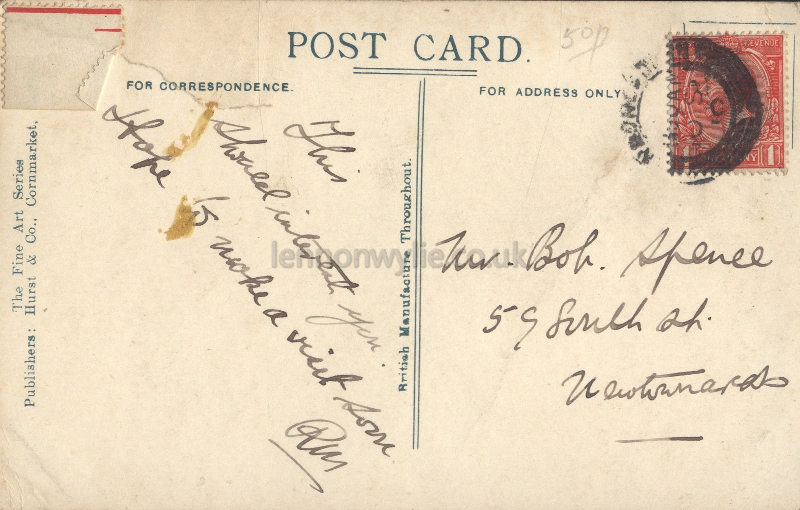 POST CARD.
50p
FOR CORRESPONDENCE.
FOR ADDRESS ONLY
This
should interest you.
Hope to make a visit soon
RM
The Fine Art Series
Publishers: Hurst & Co., Cornmarket.
British Manufacture Throughout.
lennonwylie.co.uk
REVENUE
1
Mr. Bob. Spence
59 South St.
Newtownards